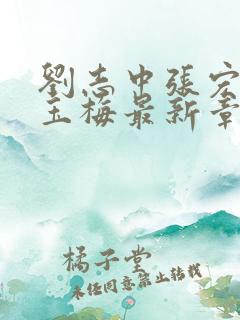 劉志中張宏
玉梅最新章
橘子堂
未經同意禁止轉載